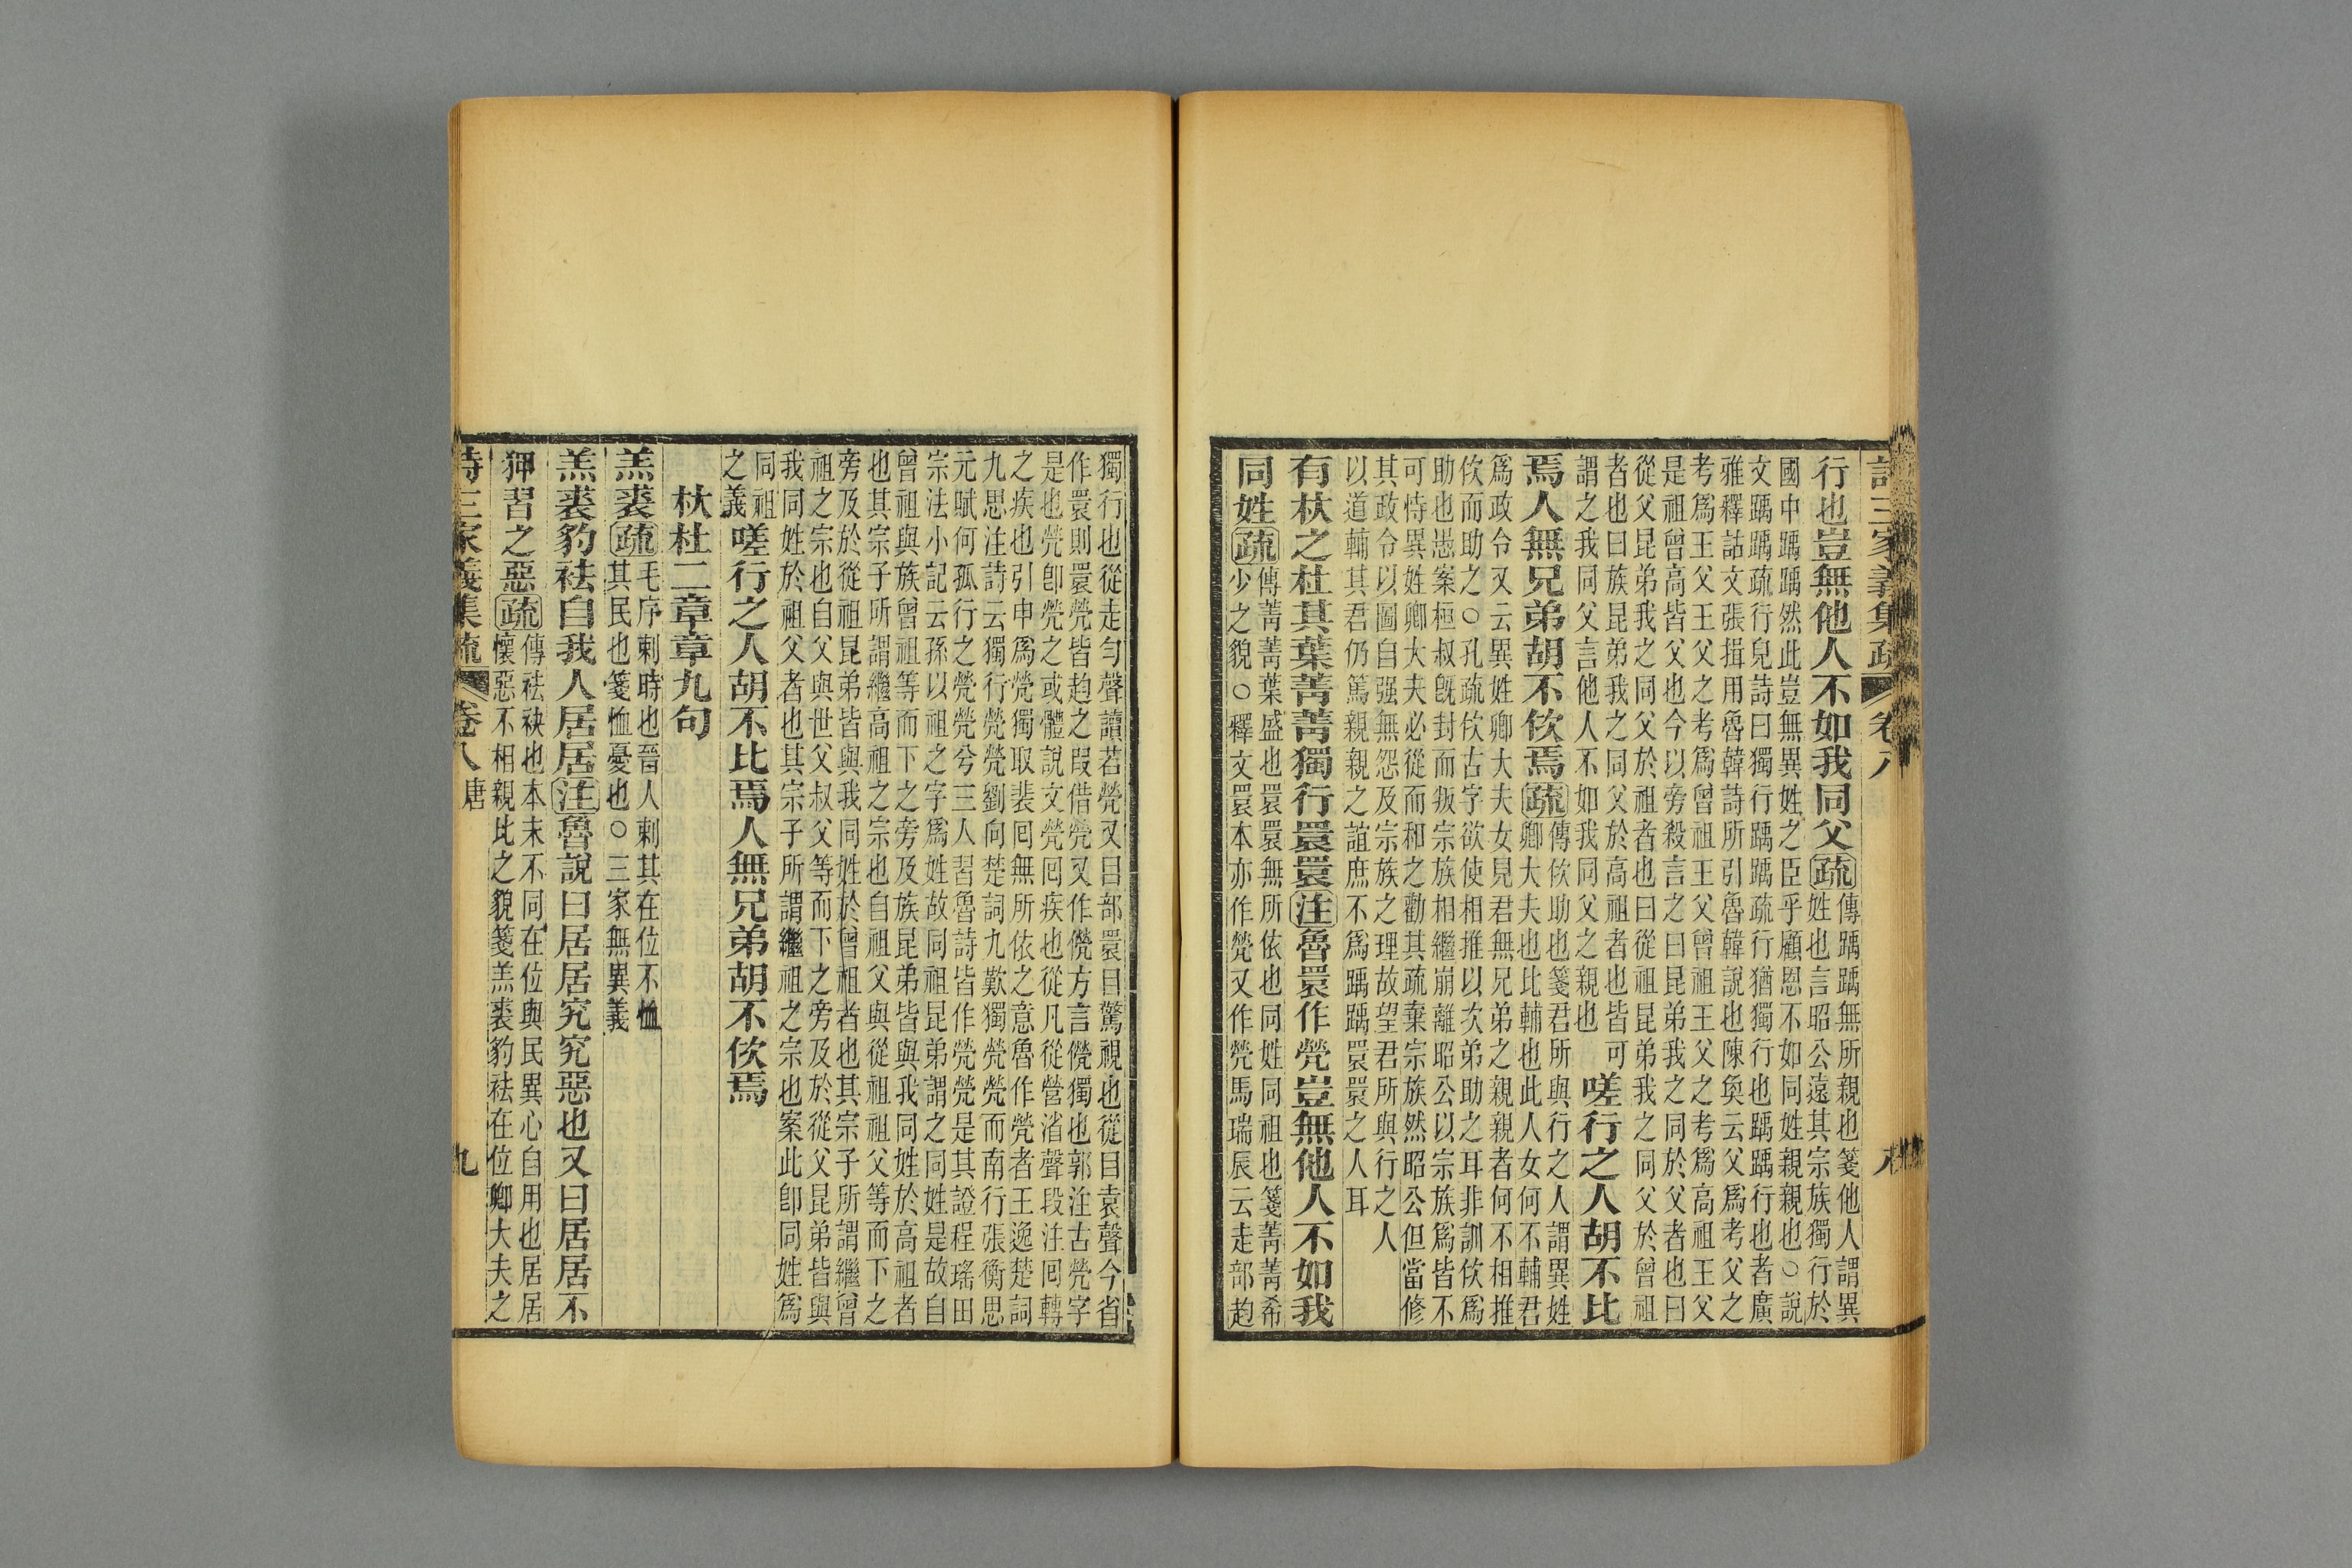 詩三家義集疏 卷八 八
行也豈無他人不如我同父疏傳踽踽無所親也箋他人謂異
姓也言昭公遠其宗族獨行於
國中踽踽然此豈無異姓之臣乎顧恩不如同姓親親也○說
文踽踽疏行皃詩曰獨行踽踽疏行猶獨行也踽踽行也者廣
雅釋詁文張揖用魯韓詩所引魯韓說也陳奐云父爲考父之
考爲王父王父之考爲曾祖王父曾祖王父之考爲高祖王父
是祖曾高皆父也今以旁殺言之曰昆弟我之同於父者也曰
從父昆弟我之同父於祖者也曰從祖昆弟我之同父於曾祖
者也曰族昆弟我之同父於高祖者也皆可
謂之我同父言他人不如我同父之親也
嗟行之人胡不比
焉人無兄弟胡不佽焉疏傳佽助也箋君所與行之人謂異姓
卿大夫也比輔也此人女何不輔君
爲政令又云異姓卿大夫女見君無兄弟之親親者何不相推
佽而助之○孔疏佽古字欲使相推以次弟助之耳非訓佽爲
助也愚案極叔旣封而叛宗族相繼崩離昭公以宗族爲皆不
可恃異姓卿大夫必從而和之勸其疏棄宗族然昭公但當修
其政令以圖自强無怨及宗族之理故望君所與行之人
以道輔其君仍篤親親之誼庶不爲踽踽睘睘之人耳
有杕之杜其葉菁菁獨行睘睘注魯睘作煢豈無他人不如我
同姓疏傳菁菁葉盛也睘睘無所依也同姓同祖也箋菁菁希
少之貌○釋文睘本亦作煢又作煢馬瑞辰云走部赹
獨行也從走勻聲讀若煢又目部睘目驚視也從目袁聲今省
作睘則睘煢皆赹之叚借煢又作㒌方言㒌獨也郭注古煢字
是也煢卽煢之或體說文煢回疾也從凡從營省聲段注回轉
之疾也引申爲煢獨取裴回無所依之意魯作煢者王逸楚詞
九思注詩云獨行煢煢劉向楚詞九歎獨煢煢而南行張衡思
元賦何孤行之煢煢兮三人習魯詩皆作煢煢是其證程瑤田
宗法小記云孫以祖之字爲姓故同祖昆弟謂之同姓是故自
曾祖與族曾祖等而下之旁及族昆弟皆與我同姓於高祖者
也其宗子所謂繼高祖之宗也自祖父與從祖祖父等而下之
旁及於從祖昆弟皆與我同姓於曾祖者也其宗子所謂繼曾
祖之宗也自父與世父叔父等而下之旁及於從父昆弟皆與
我同姓於祖父者也其宗子所謂繼祖之宗也案此卽同姓爲
同祖
之義
嗟行之人胡不比焉人無兄弟胡不佽焉
杕杜二章章九句
羔裘疏毛序刺時也晉人刺其在位不恤
其民也箋恤憂也○三家無異義
羔裘豹祛自我人居居注魯說曰居居究究惡也又曰居居不
狎習之惡疏傳祛袂也本末不同在位與民異心自用也居居
懷惡不相親比之貌箋羔裘豹祛在位卿大夫之
詩三家義集疏 卷八 唐 九